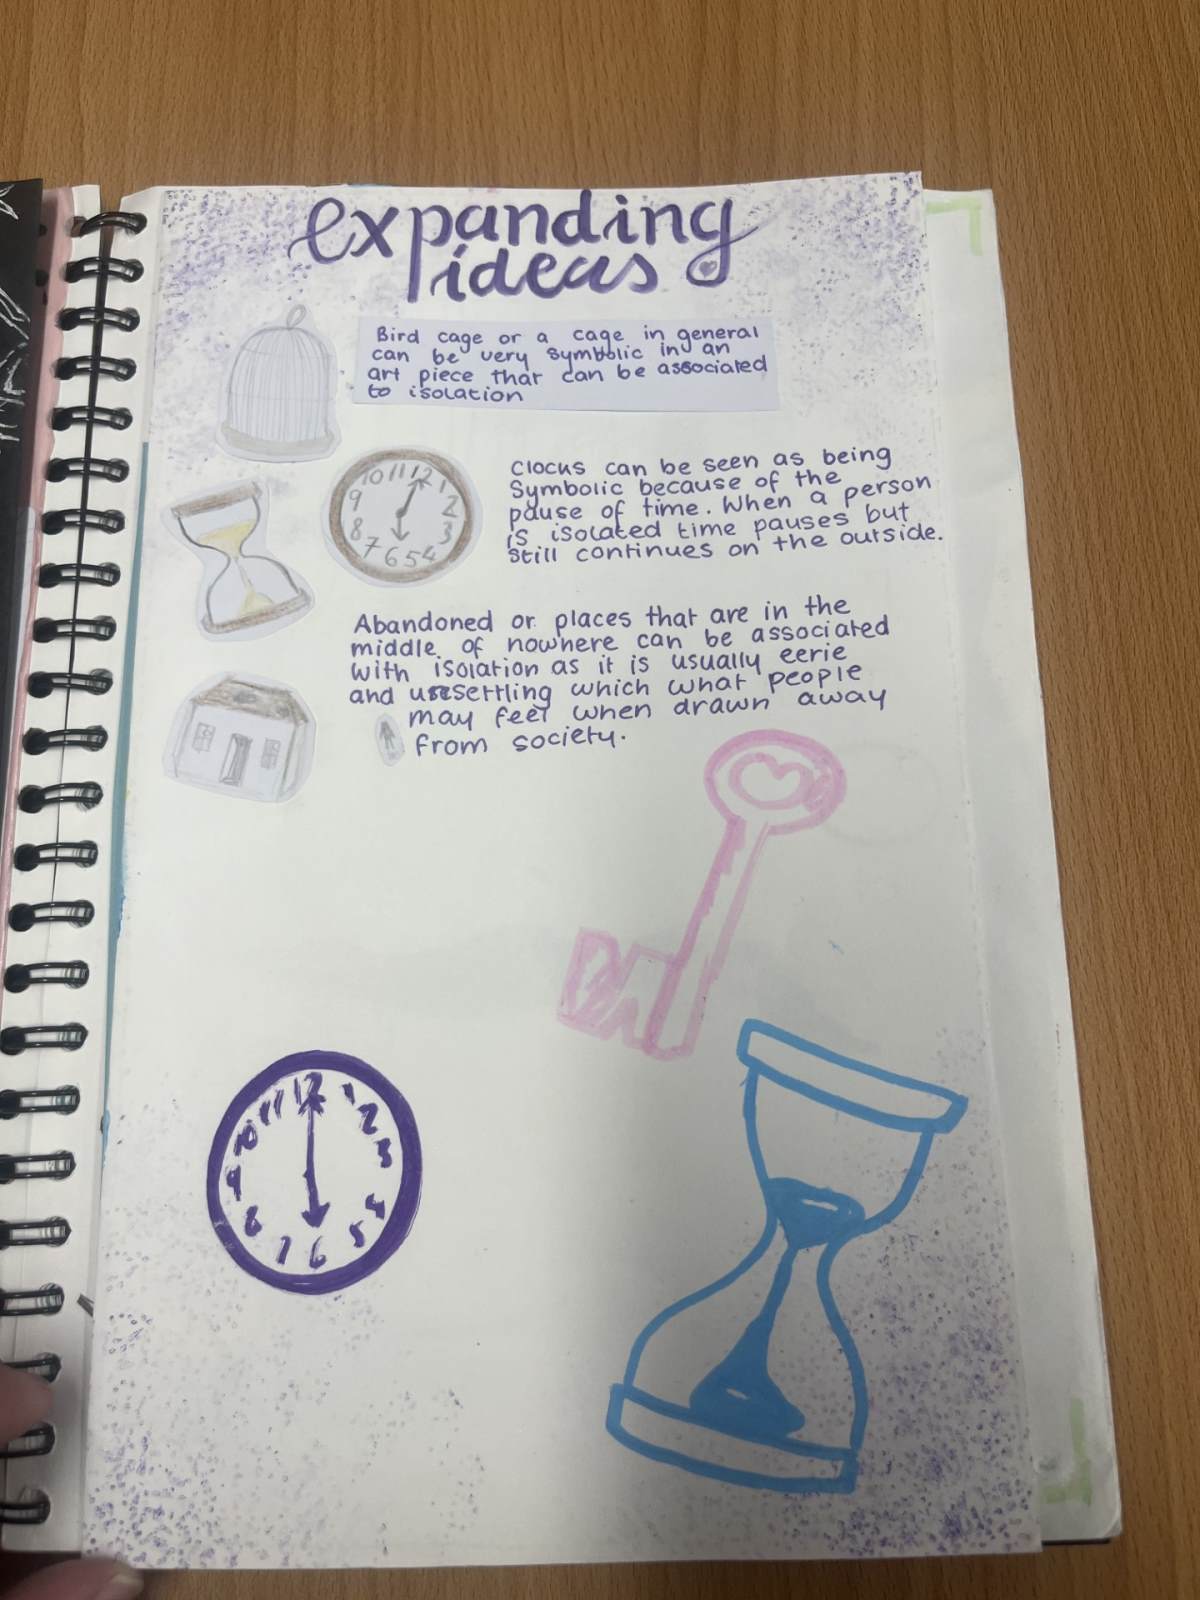 expanding
ideas
Bird cage or a cage in general
can be very symbolic in an
art piece that can be associated
to isolation
10 11 12 1
9 2
8 3
7 6 5 4
Clocks can be seen as being
Symbolic because of the
pause of time. When a person
is isolated time pauses but
still continues on the outside.
Abandoned or places that are in the
middle of nowhere can be associated
with isolation as it is usually eerie
and unsettling which what people
may feel when drawn away
from society.
11 12 1
10 2
9 3
8 4
7 6 5